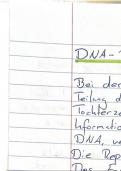 DNA-
Bei der
Teilung d
Tochterze
Informatio
DNA, w
Die Rep
Das En